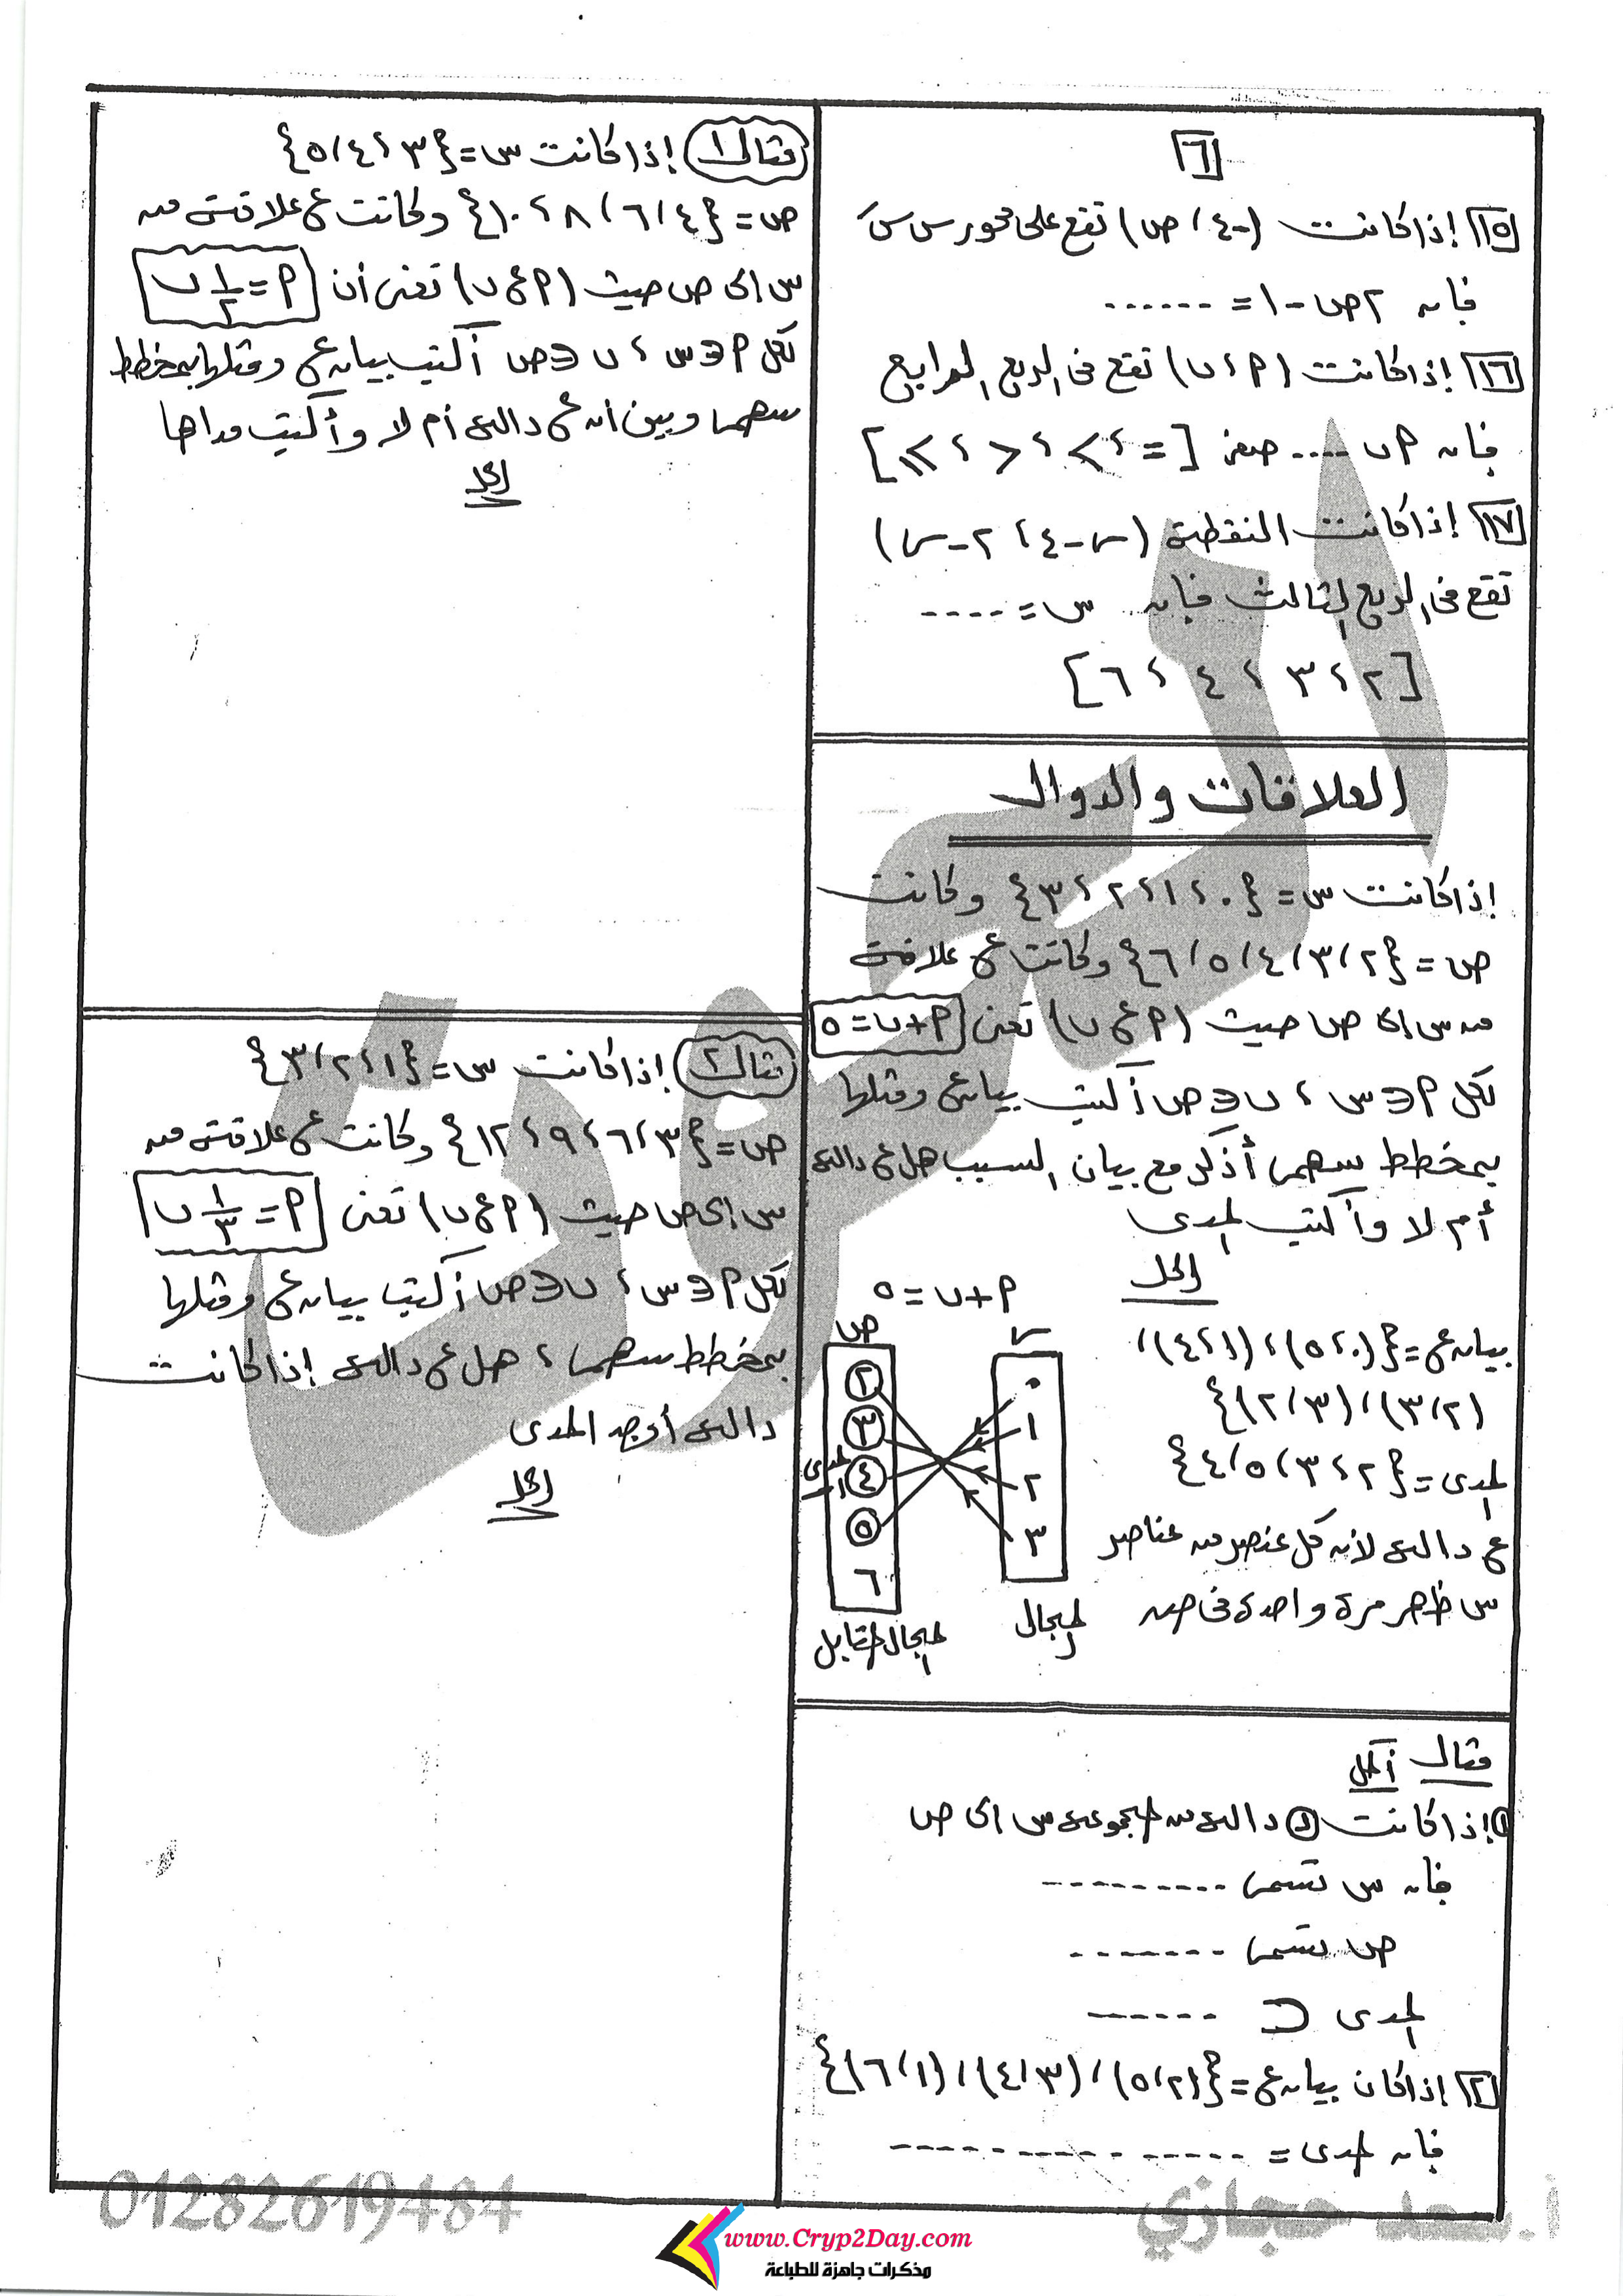 ٦
١٥ إذا كانت (-٤، ص) تقع على محور س سَ
فإن ٢ص - ١ = ------
١٦ إذا كانت (٩، ب) تقع فى الربع الرابع
فإن ٩ ب ---- صفر [= ، > ، < ، ≥]
١٧ إذا كانت النقطة (س-٤، ٢-س)
تقع فى الربع الثالث فإن س = ----
[٢ ، ٣ ، ٤ ، ٦]
العلاقات والدوال
إذا كانت س = {٠ ، ١ ، ٢ ، ٣} وكانت
ص = {٢، ٣، ٤، ٥، ٦} وكانت ع علاقة
من س إلى ص حيث (٩ ع ب) تعنى ٩+ب=٥
لكل ٩∈س ، ب∈ص أكتب بيان ع ومثلها
بمخطط سهمى أذكر مع بيان السبب هل ع دالة
أم لا وأكتب المدى
الحل
٩+ب=٥
بيان ع = {(٠، ٥)، (١، ٤)،
(٢، ٣)، (٣، ٢)}
المدى = {٢، ٣، ٥، ٤}
ع دالة لأن كل عنصر من عناصر
س ظهر مرة واحدة فى ص
س
٠
١
٢
٣
المجال
ص
٢
٣
٤
٥
٦
المدى
المجال المقابل
مثال أكمل
١ إذا كانت د دالة من المجموعة س إلى ص
فإن س تسمى ----------
ص تسمى --------
المدى ⊂ ------
٢ إذا كان بيان ع = {(٢، ٥)، (٣، ٤)، (١، ٦)}
فإن المدى = ----------------
مثال ١ إذا كانت س = {٣، ٤، ٥}
ص = {٤، ٦، ٨، ١٠} وكانت ع علاقة من
س إلى ص حيث (٩ ع ب) تعنى أن ٩ = ١/٢ ب
لكل ٩∈س ، ب∈ص أكتب بيان ع ومثلها بمخطط
سهمى وبين أن ع دالة أم لا وأكتب مداها
الحل
مثال ٢ إذا كانت س = {١، ٢، ٣}
ص = {٣، ٦، ٩، ١٢} وكانت ع علاقة من
س إلى ص حيث (٩ ع ب) تعنى ٩ = ١/٣ ب
لكل ٩∈س ، ب∈ص أكتب بيان ع ومثلها
بمخطط سهمى ، هل ع دالة إذا كانت
دالة أوجد المدى
الحل
01282619484
أ. سعد حجازي
www.Cryp2Day.com
مذكرات جاهزة للطباعة